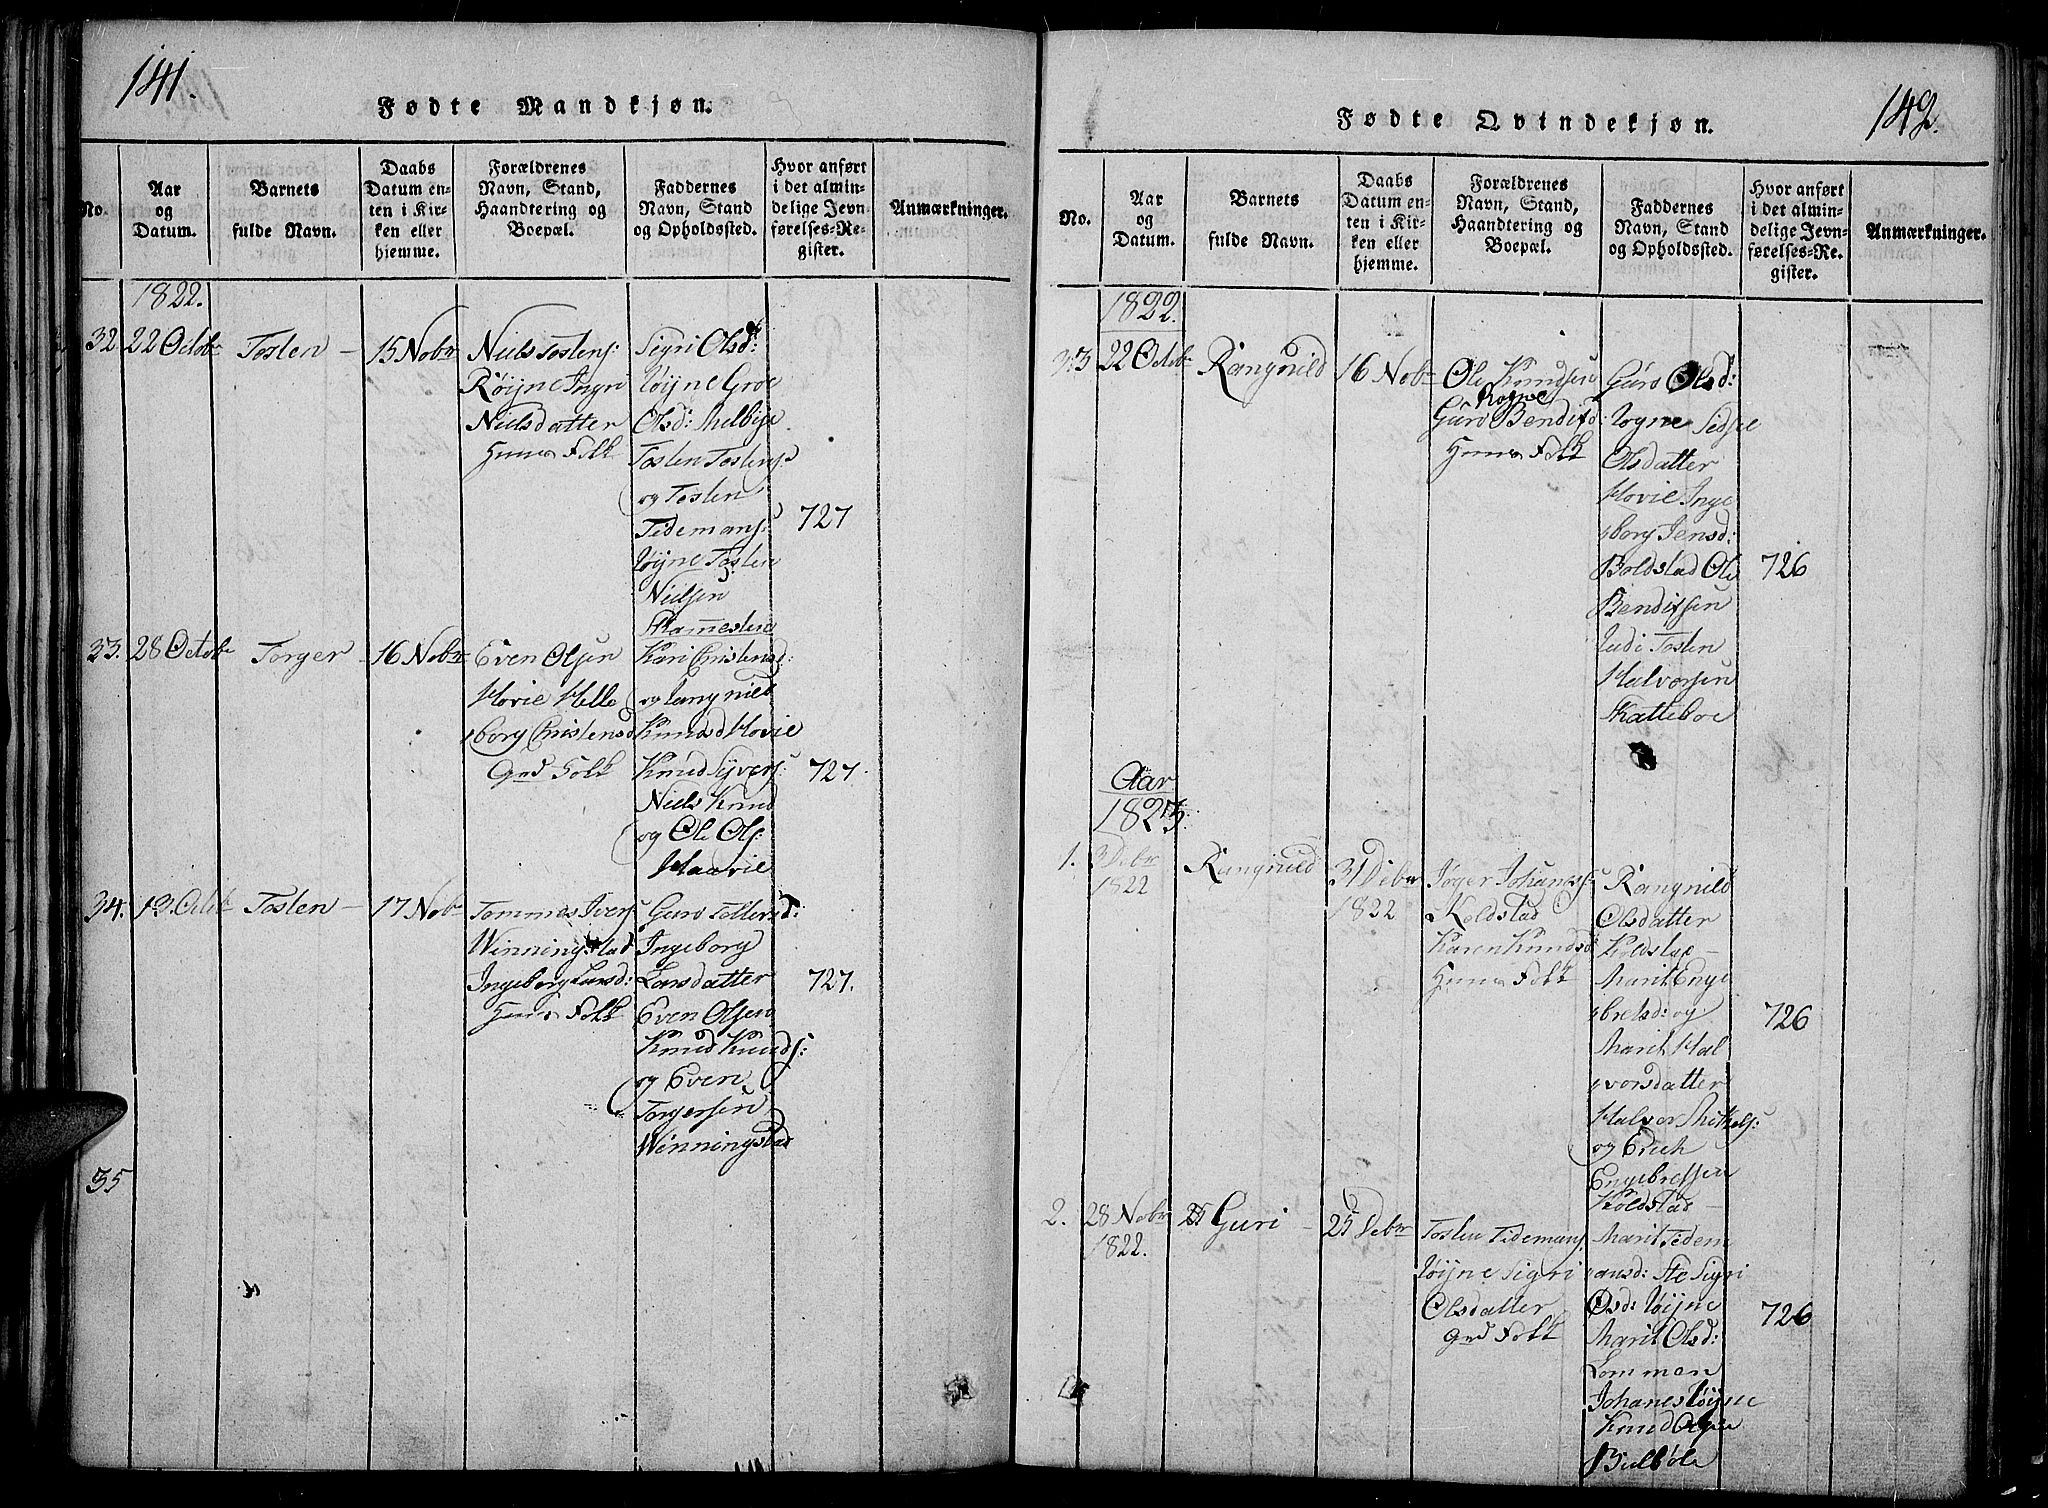 141.
Fødte Mandkjøn.
No.
Aar
og
Datum.
Barnets
fulde Navn.
Daabs
Datum en-
ten i Kir-
ken eller
hjemme.
Forældrenes
Navn, Stand,
Haandtering og
Boepæl.
Faddernes
Navn, Stand
og Opholdssted.
Hvor anført
i det almin-
delige Jevn-
førelses-Re-
gister.
Anmærkninger.
1822.
32 22 Octob: Tosten 15 Nobr
Niels Tostens:
Røijne Ingri
Nielsdatter
Huus Folk
Sigri Olsd:
Røijne Groe
Olsd: Melbije
Tosten Tostens:
og Tosten
Tidemans:
Røijne Tosten
Nielsen
727
33. 28 Octob: Torger 16 Nobr
Even Olsen
Hovie Helle
borg Cristensd
Grd Folk
Kari Cristensd:
og Rangnild
Knudsd Hovie
Knud Syvers:
Niels Knud
og Ole Ols:
Haavie
727.
34. 19. Octb: Tosten 17 Nobr
Tommes Ivers
Winningstad
Ingeborg Larsd:
Huus Folk
Guro Tollefsd:
Ingeborg
Larsdatter
Even Olsen
Knud Knuds:
og Even
Torgersen
Winningstad
727.
35
142.
Fødte Qvindekjøn.
No.
Aar
og
Datum.
Barnets
fulde Navn.
Daabs
Datum en-
ten i Kir-
ken eller
hjemme.
Forældrenes
Navn, Stand,
Haandtering og
Boepæl.
Faddernes
Navn, Stand
og Opholdssted.
Hvor anført
i det almin-
delige Jevn-
førelses-Re-
gister.
Anmærkninger.
1822.
33 22 Octob: Rangnild 16 Nobr
Ole Knudsen
Rogne
Guro Bendixd:
Huus Folk
Guro Olsd:
Rogne Sidsele
Olsdatter
Hovie Inge
borg Jensd:
Boldstad Ole
Bendixsen
Tosten
Halvorsen
Skatteboe
726
Aar
1823.
1. 3 Debr
1822
Rangnild
31 Debr
1822
Johanes:
Koldstad
Karen Knudsd
Huus Folk
Rangnild
Olsdatter
Koldstad
Marit Enge
brelsd: og
Marit Hal
vorsdatter
Halvor Mikkels:
og Erich
Engebretsen
Koldstad
726
2. 28 Nobr
1822.
Guri 25 Debr
Tosten Tidemans:
Røijne Sigri
Olsdatter
Grd Folk
Marit Tidem
ansd: Ste Sigri
Olsd: Røijne
Marit Olsd:
Lomman
Johanes Røijne
Knud Olsen
726